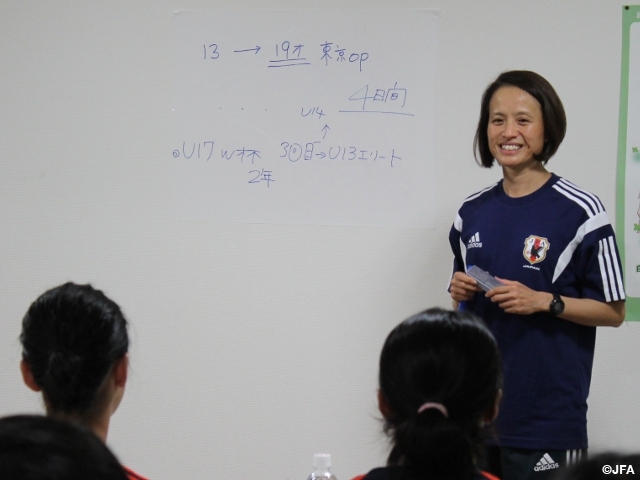 13 → 19才 東京op
・ ・ ・
U14 4日間
↑
○U17 W杯 3回目→U13エリート
2年
adidas
JAPAN
adidas
©JFA